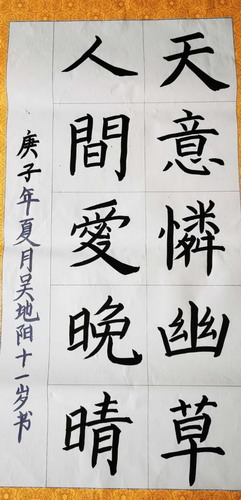 天意憐幽草
人間愛晚晴
庚子年夏月吴地阳十一岁书